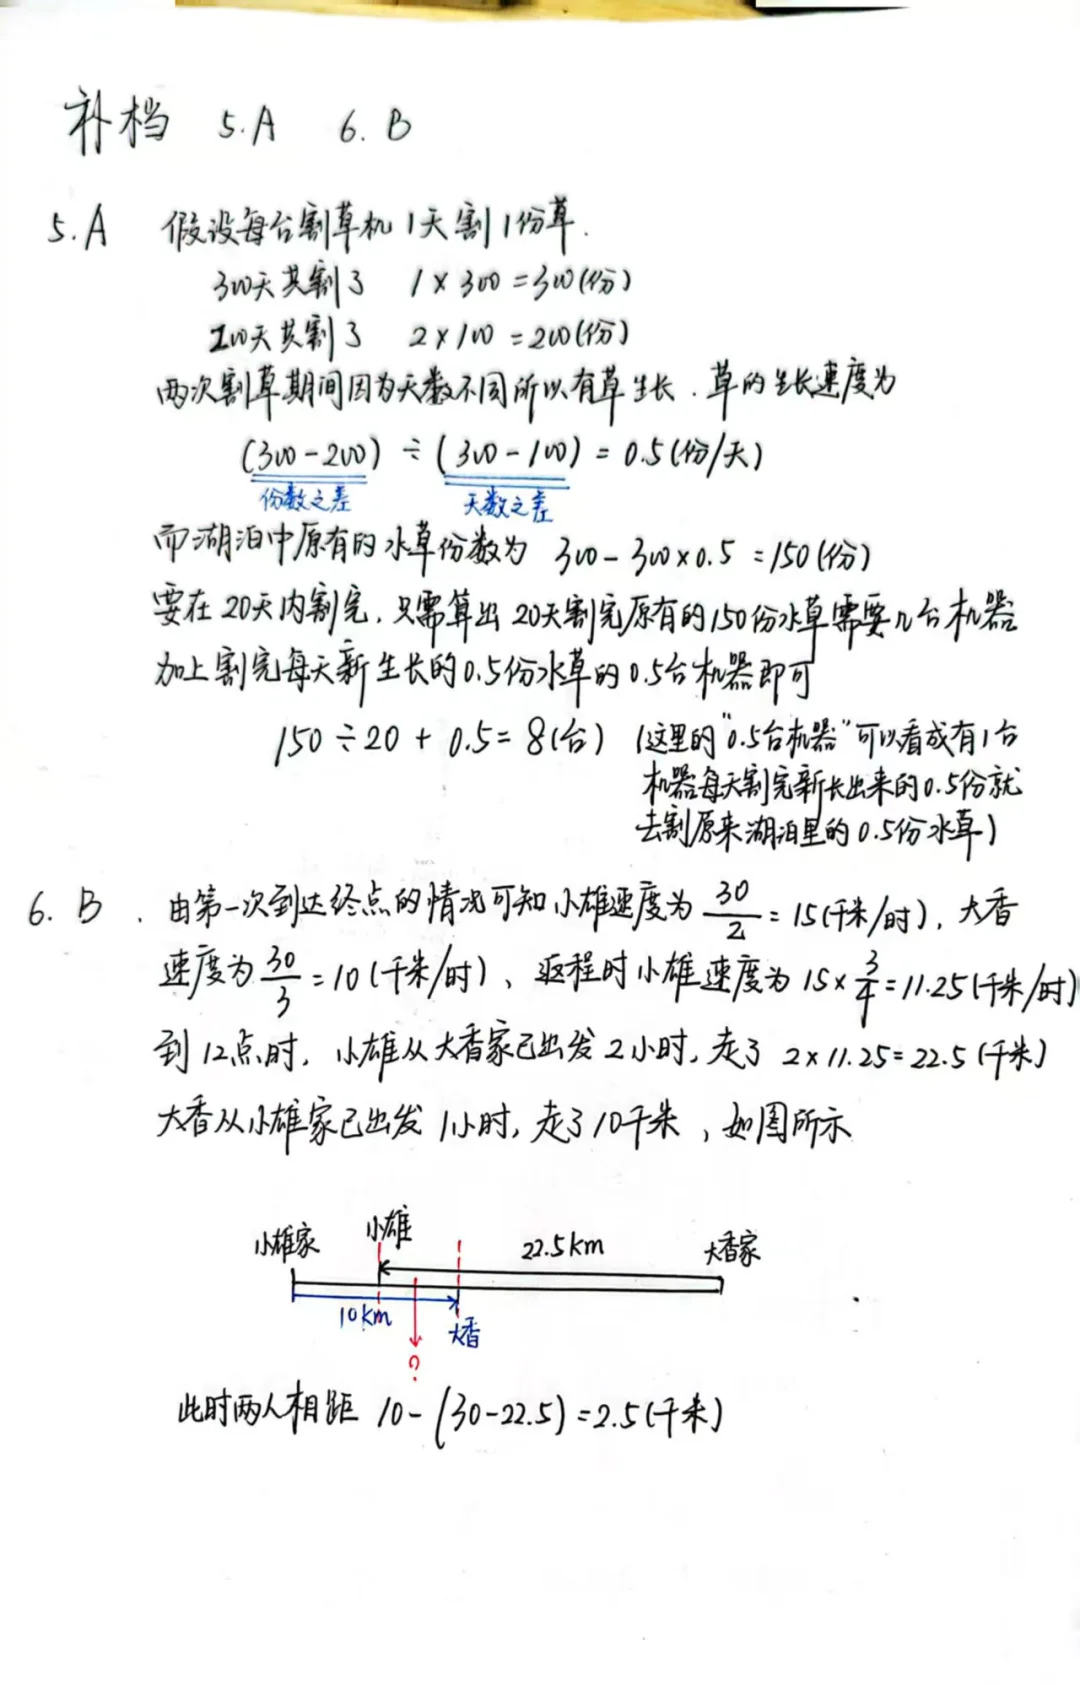 补档 5.A 6.B
5.A 假设每台割草机1天割1份草.
300天共割了 1×300=300(份)
100天共割了 2×100=200(份)
两次割草期间因为天数不同所以有草生长.草的生长速度为
(300-200)÷(300-100)=0.5(份/天)
份数之差 天数之差
而湖泊中原有的水草份数为 300-300×0.5=150(份)
要在20天内割完,只需算出20天割完原有的150份水草需要几台机器
加上割完每天新生长的0.5份水草的0.5台机器即可
150÷20+0.5=8(台) (这里的"0.5台机器"可以看成有1台
机器每天割完新长出来的0.5份就
去割原来湖泊里的0.5份水草)
6.B. 由第一次到达终点的情况可知小雄速度为 30/2=15(千米/时),大香
速度为 30/3=10(千米/时)、返程时小雄速度为 15×3/4=11.25(千米/时)
到12点时,小雄从大香家已出发2小时,走了 2×11.25=22.5(千米)
大香从小雄家已出发1小时,走了10千米,如图所示
小雄家 小雄 22.5km 大香家
10km 大香
?
此时两人相距 10-(30-22.5)=2.5(千米)